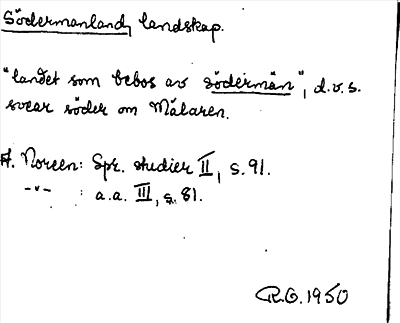 Södermanland, landskap.
"landet som bebos av södermän", d.v.s.
svear söder om Mälaren.
A. Noreen: Spr. studier II, s. 91.
-"- : a.a. III, s. 81.
R.O. 1950